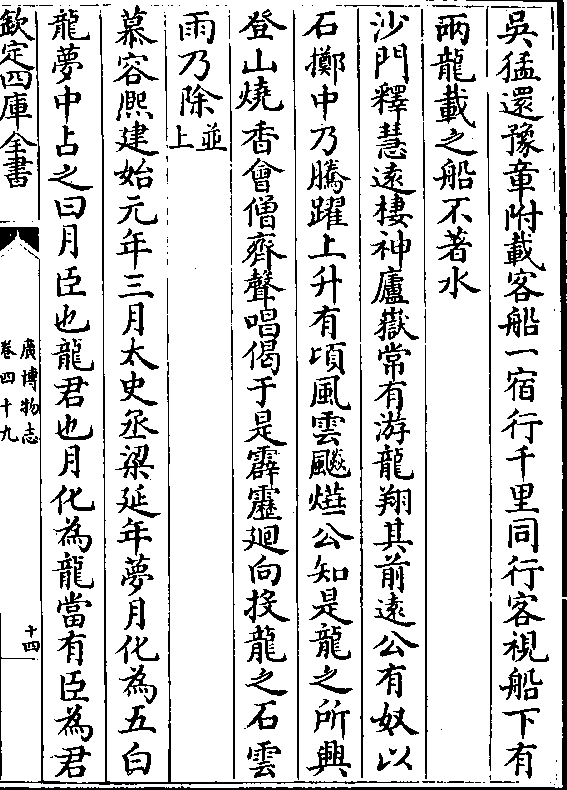 吳猛還豫章附載客船一宿行千里同行客視船下有
兩龍載之船不著水
沙門釋慧遠棲神廬嶽常有游龍翔其前遠公有奴以
石擲中乃騰躍上升有頃風雲飈㷸公知是龍之所興
登山燒香會僧齊聲唱偈于是霹靂廻向投龍之石雲
雨乃除並上
慕容熈建始元年三月太史丞梁延年夢月化為五白
龍夢中占之曰月臣也龍君也月化為龍當有臣為君
欽定四庫全書
廣博物志
卷四十九
十四